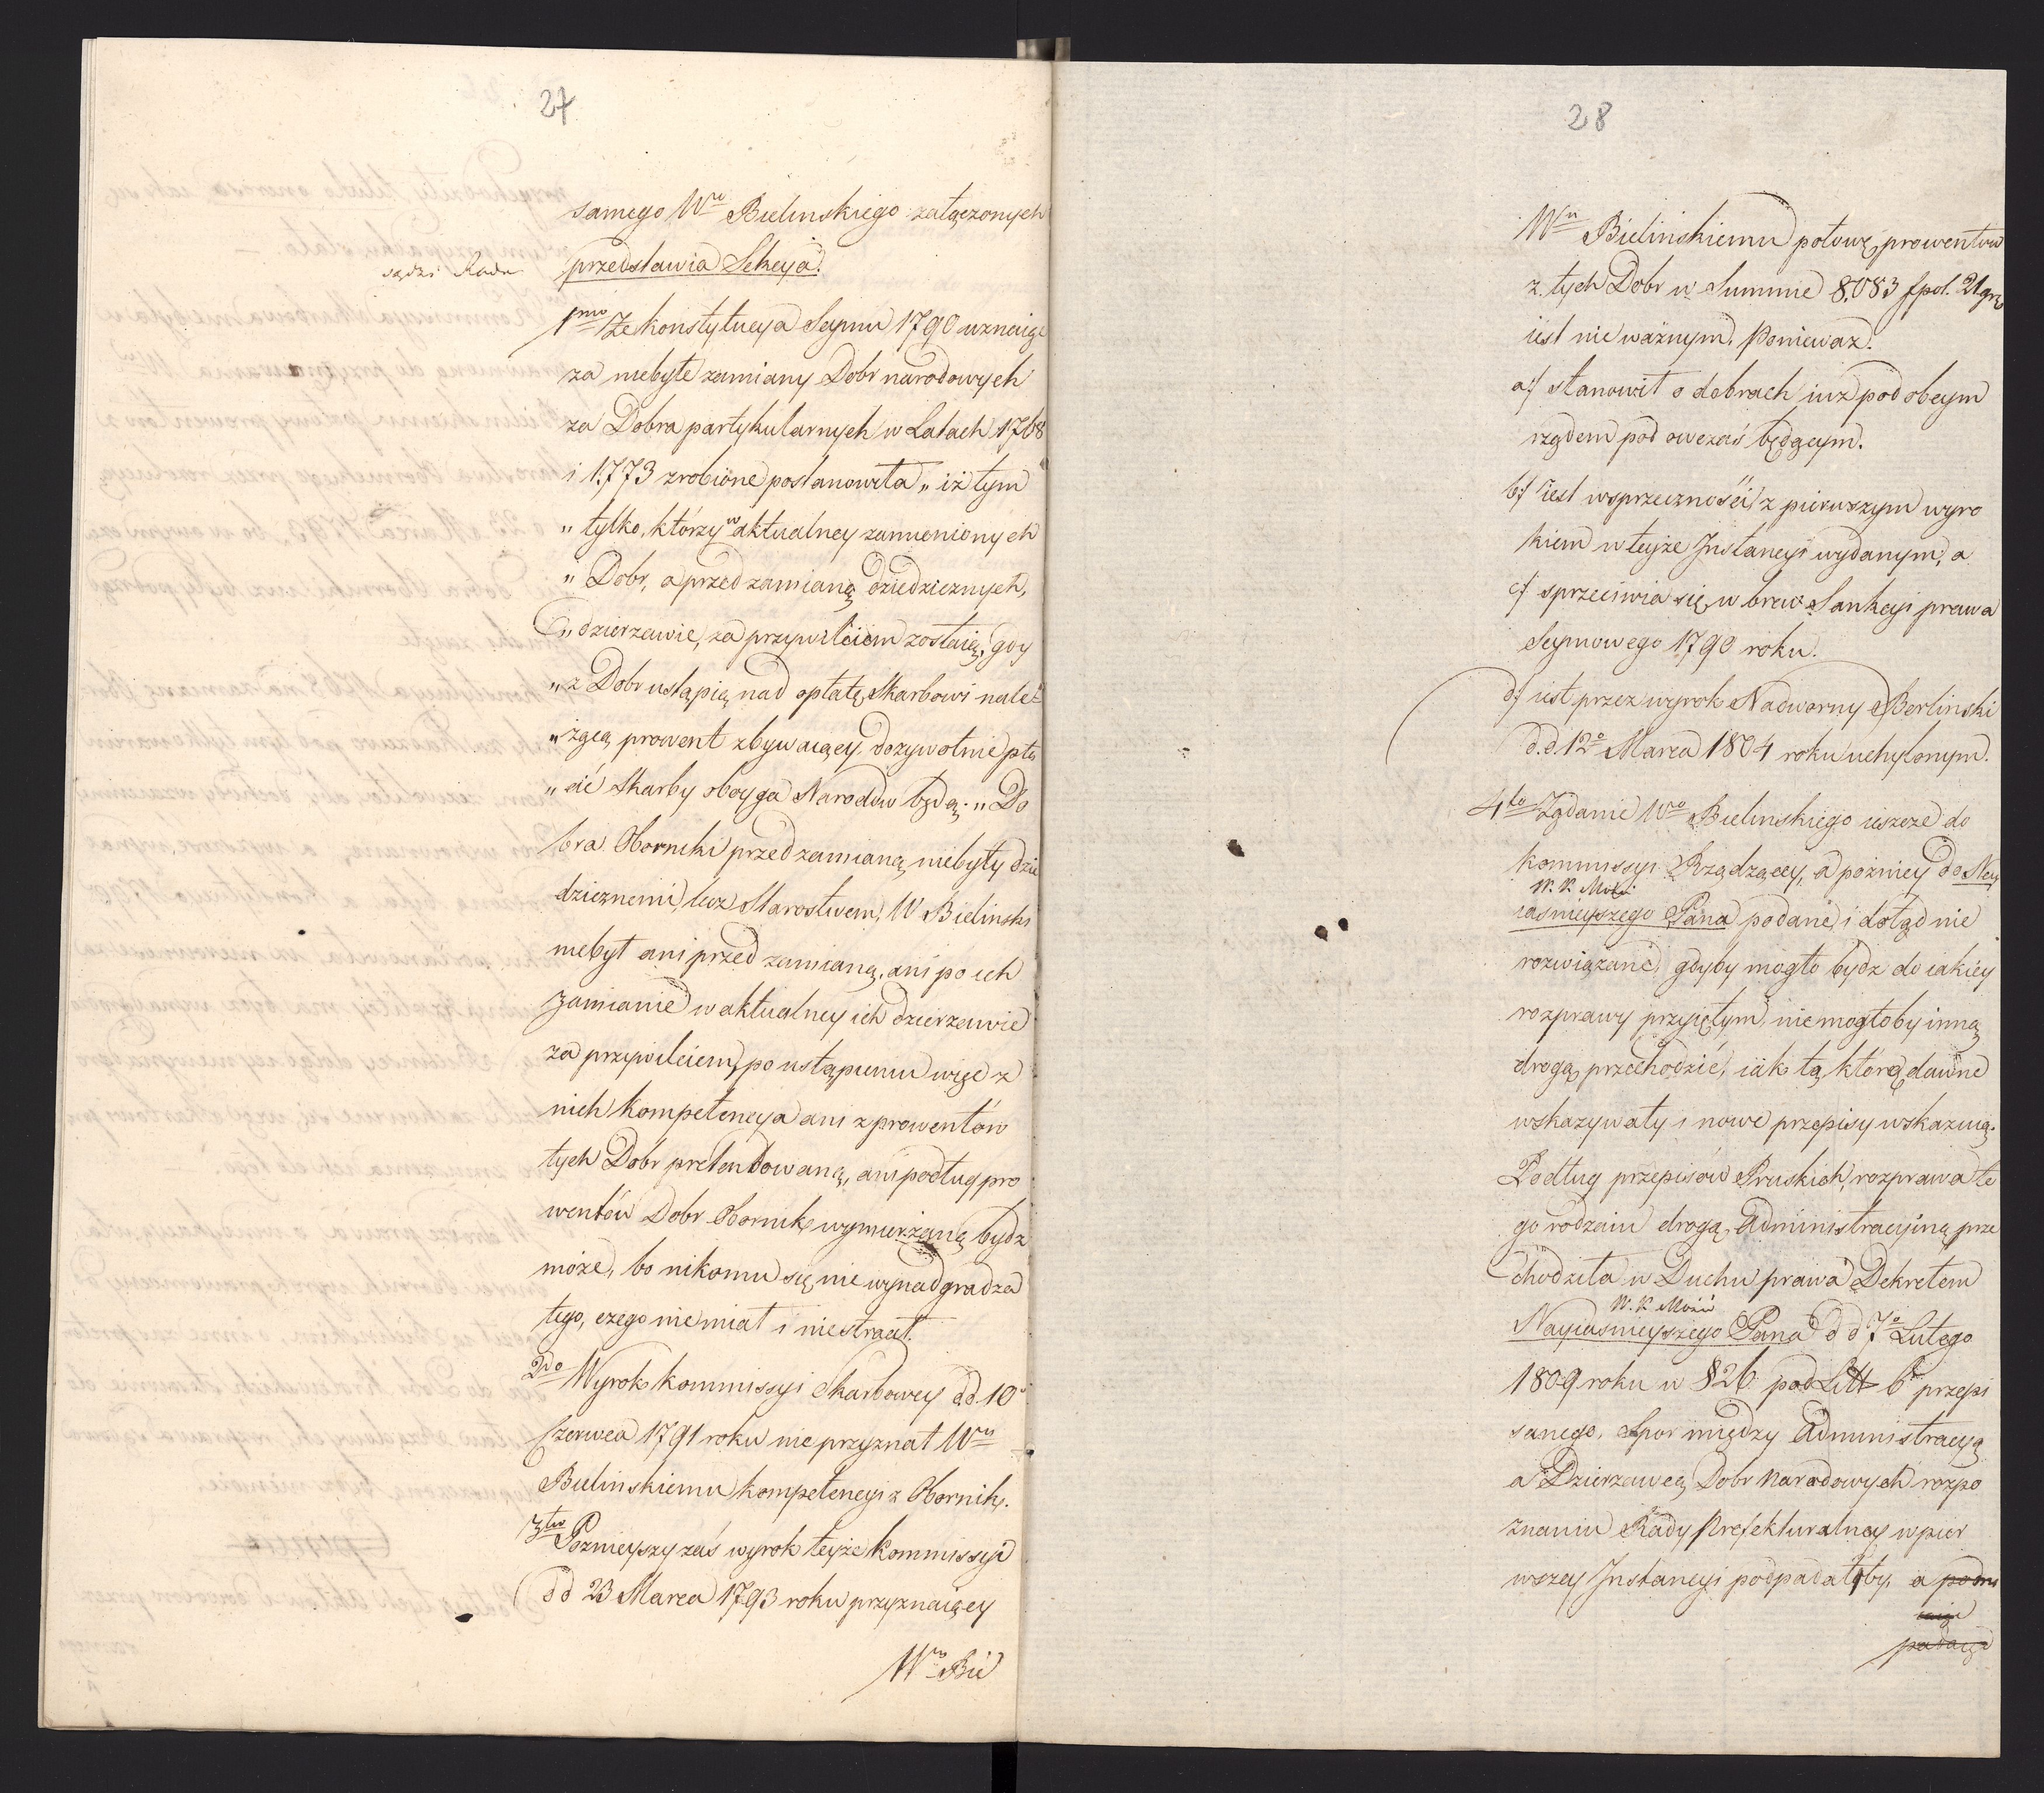 27
samego Wgo Bielinskiego załączonych
sądzi Rada
przedstawia Sekcya.
1mo Że konstytucya Seymu 1790 uznaiąc
za niebyłe zamiany Dobr narodowych
za Dobra partykularnych w Latach 1768
i 1773 zrobione postanowiła „ iż tym
„ tylko, którzy w aktualney zamienionych
„ Dobr, a przed zamianą dziedzicznych,
„ dzierzawie, za przywileiem zostaią, gdy
„ z Dobr ustąpią nad opłatę Skarbowi nale
„ żącą prowent zbywaiący dozywotnie pła
„ cić Skarby oboyga Narodów będą. „ Do
bra Oborniki przed zamianą niebyły dzie
dzicznemi, lecz Starostwem, W Bielinski
niebył ani przed zamianą, ani po ich
zamianie w aktualney ich dzierzawie
za przywileiem, po ustąpieniu więc z
nich kompetencya ani z prowentów
tych Dobr pretendowaną, ani podług pro
wentów Dobr Obornik wymierzaną bydz
może, bo nikomu się nie wynadgradza
tego, czego nie miał i nie stracił.
2do Wyrok kommissyi Skarbowey d.d. 10
Czerwca 1791 roku nie przyznał Wu
Bielinskiemu kompetencyi z Obornik.
3tio Poznieyszy zaś wyrok teyże Kommissyi
d d 23 Marca 1793 roku przyznaiący
Wu Bie
28
Wu Bielinskiemu połowę prowentow
z tych Dobr w Summie 8,083 fpol. 21 gr
iest nie ważnym. Ponieważ.
a/ stanowił o dobrach iuż pod obcym
rządem pod owczas będącym.
b/ iest w sprzeczności z pierwszym wyro
kiem w teyże Instancyi wydanym, a
c/ sprzeciwia się w brew Sankcyi prawa
Seymowego 1790 roku.
d/ iest przez wyrok Nadworny Berlinski
d.d. 12o Marca 1804 roku uchylonym.
4to Żądanie Wgo Bielinskiego ieszcze do
kommissyi Rządzącey, a pozniey do Nay
W. K. Mci
iasnieyszego Pana podane, i dotąd nie
rozwiązane, gdyby mogło bydz do iakiey
rozprawy przyiętym, nie mogłoby inną
drogą przechodzić, iak tą którą dawne
wskazywały i nowe przepisy wskazuią.
Podług przepisów Pruskich, rozprawa te
go rodzaiu drogą Administracyiną prze
chodziła w Duchu prawa Dekretem
W. K. Mości
Nayiasnieyszego Pana d d 7o Lutego
1809 roku w §26 pod Litt b przepi
sanego, Spor między Administracyą
a Dzierzawcą Dobr Narodowych rozpo
znaniu Rady Prefekturalney w pier
wszey Instancyi podpadałby, a